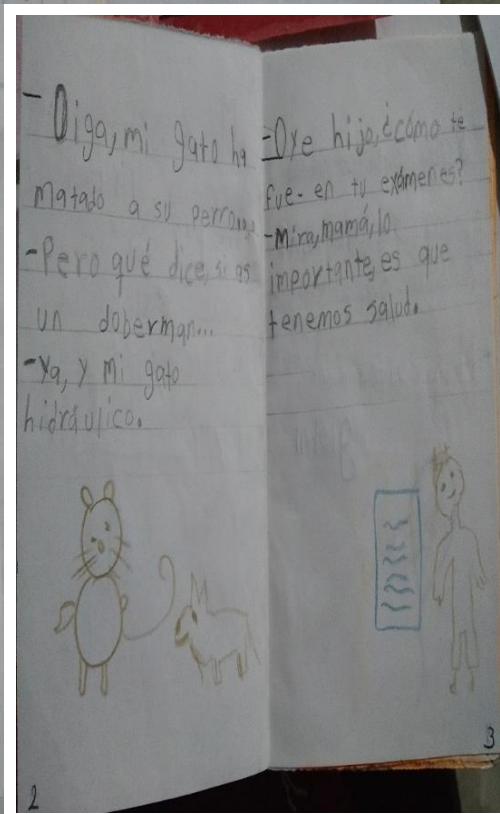 -Diga, mi gato ha
matado a su perro....
-Pero qué dice, si es
un doberman...
-Ya, y mi gato
hidráulico.
2
-Oye hijo, ¿cómo te
fue- en tu exámenes?
-Mira, mamá, lo
importante, es que
tenemos salud.
3